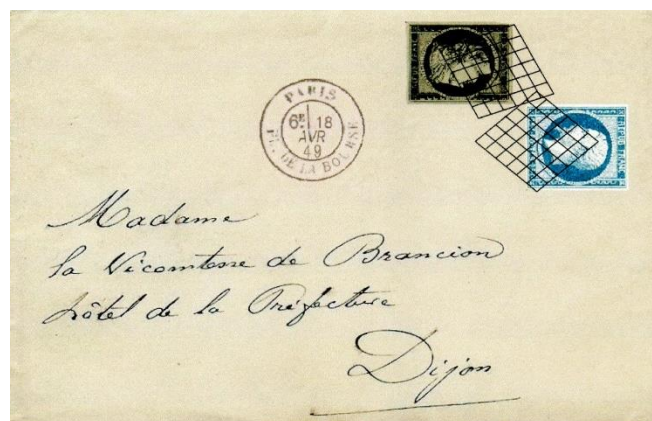 PARIS
6E 18
AVR
49
PL. DE LA BOURSE
REPUB. FRANC.
Madame
la Vicomtesse de Brancion
hôtel de la Préfecture
Dijon